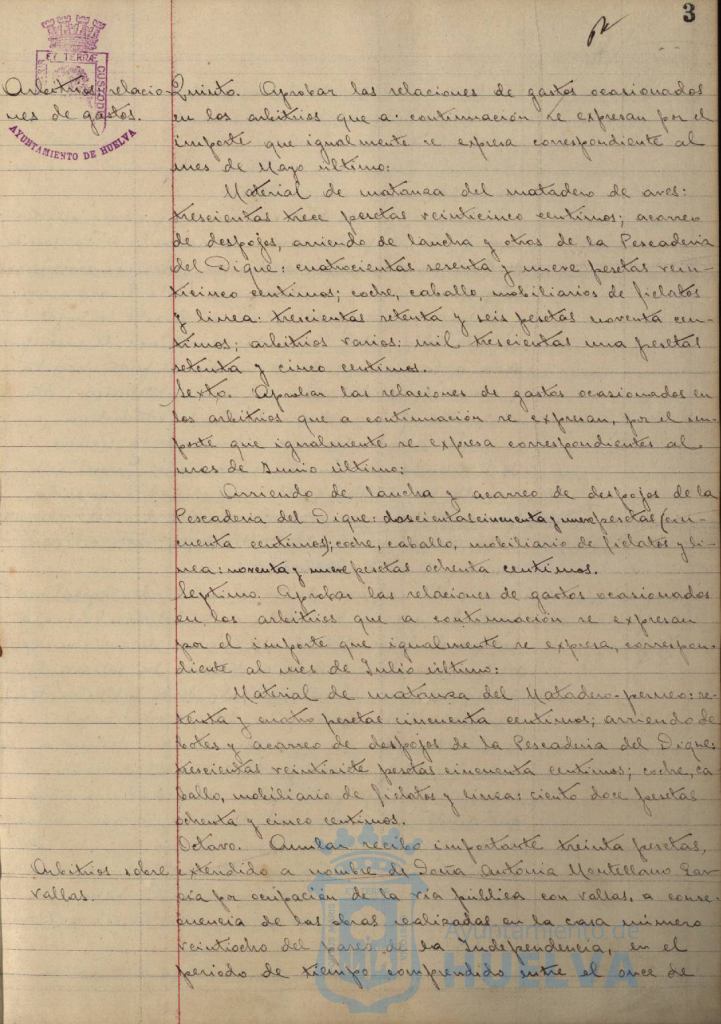 3
ET TERRÆ
CUSTODIA
AYUNTAMIENTO DE HUELVA
Arbitrios relacio-
nes de gastos.
Quinto. Aprobar las relaciones de gastos ocasionados
en los arbitrios que a continuación se expresan por el
importe que igualmente se expresa correspondiente al
mes de Mayo último:
Material de matanza del matadero de aves:
trescientas trece pesetas veinticinco centimos; acarreo
de despojos, arriendo de lancha y otros de la Pescaderia
del Dique: cuatrocientas sesenta y nueve pesetas vein-
ticinco centimos; coche, caballo, mobiliarios de fielatos
y linea: trescientas setenta y seis pesetas noventa cen-
timos; arbitrios varios: mil trescientas una pesetas
setenta y cinco centimos.
Sexto. Aprobar las relaciones de gastos ocasionados en
los arbitrios que a continuación se expresan, por el im-
porte que igualmente se expresa correspondientes al
mes de Junio último:
Arriendo de lancha y acarreo de despojos de la
Pescaderia del Dique: doscientas cincuenta y nueve pesetas (cin-
cuenta centimos); coche, caballo, mobiliario de fielatos y li-
nea: noventa y nueve pesetas ochenta centimos.
Septimo. Aprobar las relaciones de gastos ocasionados
en los arbitrios que a continuación se expresan
por el importe que igualmente se expresa, correspon-
diente al mes de Julio último:
Material de matanza del Matadero-perneo: se-
tenta y cuatro pesetas cincuenta centimos; arriendo de
botes y acarreo de despojos de la Pescaderia del Dique:
trescientas veintisiete pesetas cincuenta centimos; coche, ca-
ballo, mobiliario de fielatos y linea: ciento doce pesetas
ochenta y cinco centimos.
Arbitrios sobre
vallas.
Octavo. Anular recibo importante treinta pesetas,
extendido a nombre de Doña Antonia Montellano Gar-
cia por ocupación de la via publica con vallas, a conse-
cuencia de las obras realizadas en la casa número
veintiocho del paseo de la Independencia, en el
periodo de tiempo comprendido entre el once de
Ayuntamiento de
HUELVA